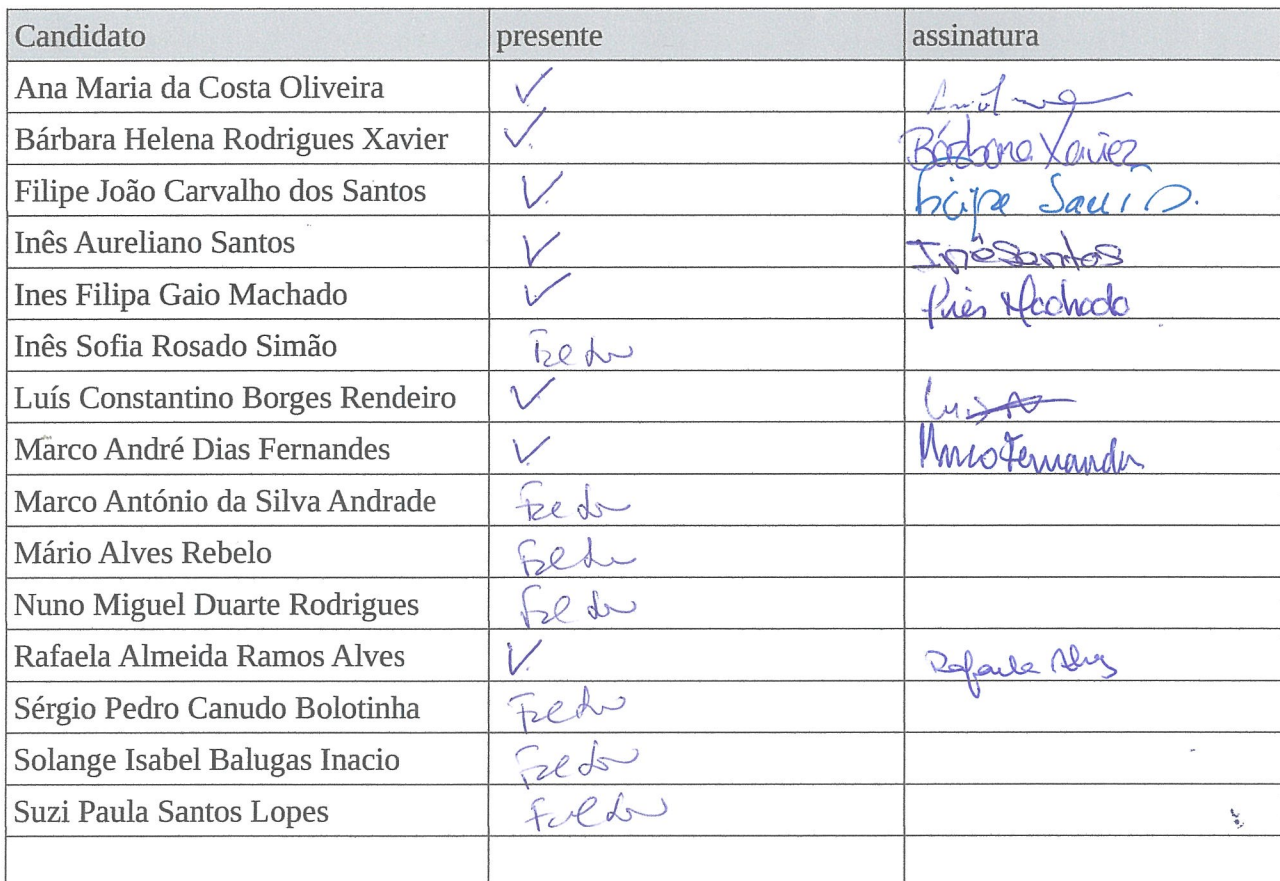 Candidato presente assinatura
Ana Maria da Costa Oliveira ✓
Bárbara Helena Rodrigues Xavier ✓ Bárbara Xavier
Filipe João Carvalho dos Santos ✓ Filipe Santos.
Inês Aureliano Santos ✓ Inês Santos
Ines Filipa Gaio Machado ✓ Inês Machado
Inês Sofia Rosado Simão Faltou
Luís Constantino Borges Rendeiro ✓ Luis
Marco André Dias Fernandes ✓ Marco Fernandes
Marco António da Silva Andrade Faltou
Mário Alves Rebelo Faltou
Nuno Miguel Duarte Rodrigues Faltou
Rafaela Almeida Ramos Alves ✓ Rafaela Alves
Sérgio Pedro Canudo Bolotinha Faltou
Solange Isabel Balugas Inacio Faltou
Suzi Paula Santos Lopes Faltou